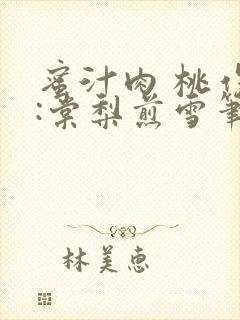 蜜汁肉桃作
:棠梨煎雪筆
林美惠